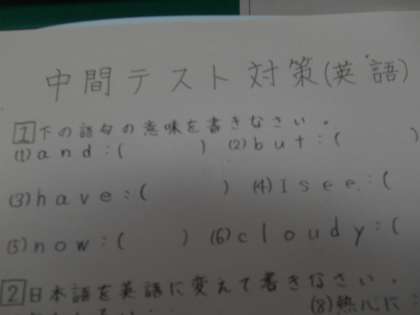 中間テスト対策(英語)
1 下の語句の意味を書きなさい。
(1) and:(     ) (2) but:(     )
(3) have:(     ) (4) I see.:(
(5) now:(     ) (6) cloudy:(
2 日本語を英語に変えて書きなさい。
(8) 熱心に: